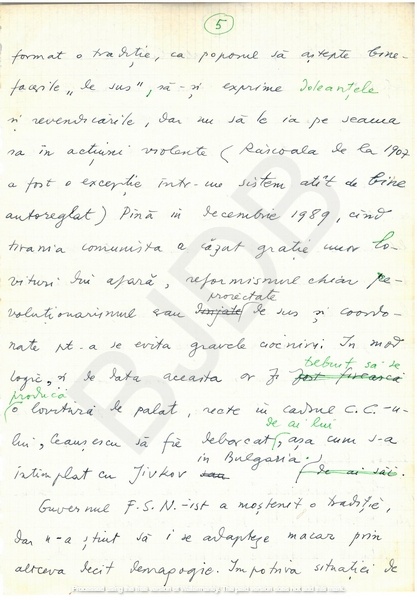 5
format o tradiție, ca poporul să aștepte bine-
facerile „de sus", să-și exprime doleanțele
și revendicările, dar nu să le ia pe seama
sa în acțiuni violente (Răscoala de la 1907
a fost o excepție într-un sistem atît de bine
autoreglat) Pînă in decembrie 1989, cînd
tirania comunista a căzut grație unor lo-
vituri din afară, reformismul chiar re-
voluționarismul sau proiectate de sus și coordo-
nate pt. a se evita gravele ciocniri. In mod
logic, si de data aceasta ar fi trebuit să se
producă
o lovitură de palat, recte în cadrul C.C.-u-
lui, Ceaușescu să fie debarcat de ai lui, așa cum s-a
intimplat cu Jivkov in Bulgaria.
Guvernul F.S.N.-ist a moștenit o tradiție,
dar n-a știut să i se adapteze macar prin
altceva decit demagogie. Impotriva situației de
BJDB